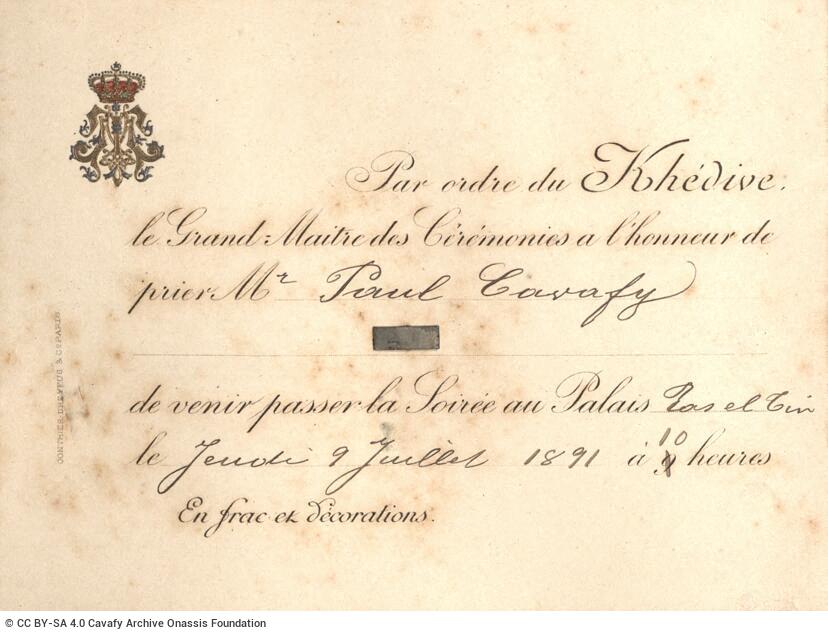 Par ordre du Khédive.
le Grand-Maitre des Cérémonies a l'honneur de
prier Mr Paul Cavafy
de venir passer la Soirée au Palais Ras el Tin
le Jeudi 9 Juillet 1891 à 10 heures
En frac et décorations.
GONTHIER-DREYFUS & Co PARIS
© CC BY-SA 4.0 Cavafy Archive Onassis Foundation